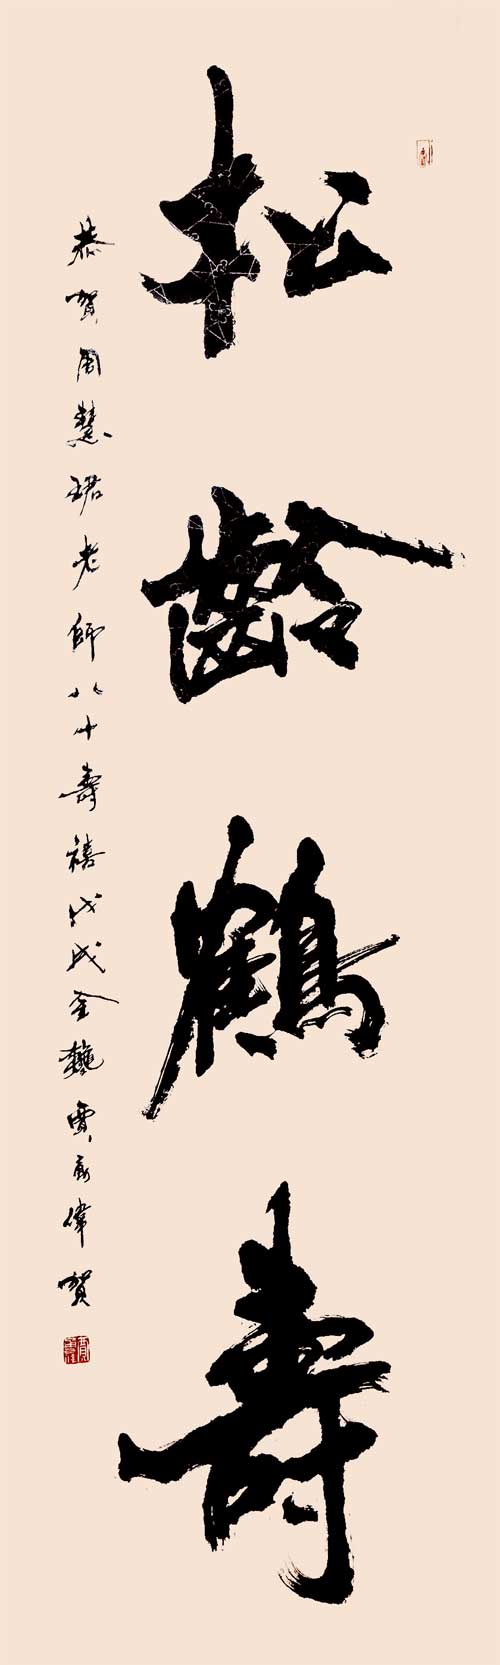 松齡鶴壽
恭賀周慧珺老師八十壽禧戊戌金秋賈而偉賀